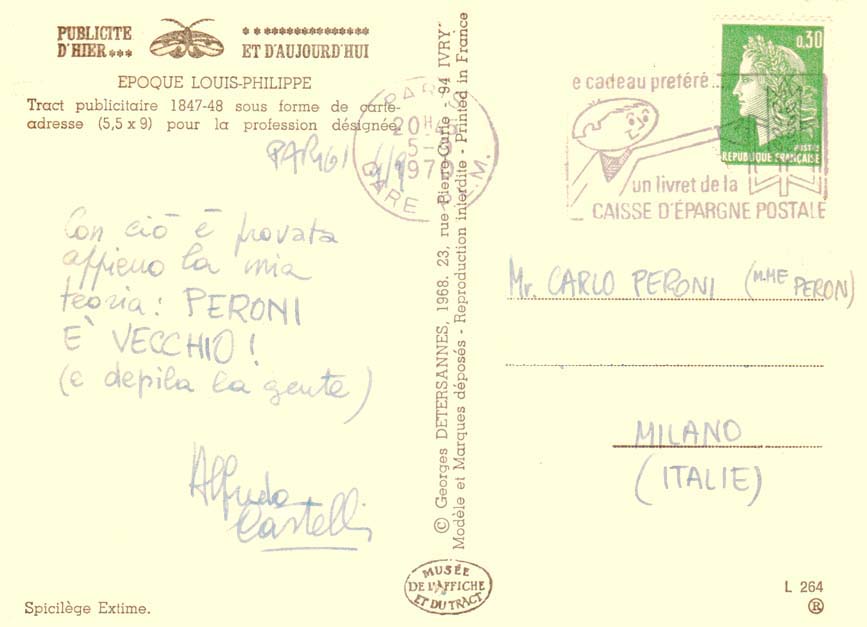 PUBLICITE
D'HIER
ET D'AUJOURD'HUI
EPOQUE LOUIS-PHILIPPE
Tract publicitaire 1847-48 sous forme de carte-
adresse (5,5 x 9) pour la profession désignée.
PARIGI
Con ciò è provata
appieno la mia
teoria: PERONI
E' VECCHIO!
(e depila la gente)
Alfredo
Castelli
Spicilège Extime.
© Georges DETERSANNES, 1968. 23, rue Pierre-Curie - 94 IVRY
Modèle et Marques déposés - Reproduction interdite - Printed in France
MUSÉE
DE L'AFFICHE
ET DU TRACT
PARIS
20H
1970
GARE
e cadeau préféré...
un livret de la
CAISSE D'ÉPARGNE POSTALE
0,30
POSTES
REPUBLIQUE FRANÇAISE
Mr. CARLO PERONI (M.ME PERON)
MILANO
(ITALIE)
L 264
®